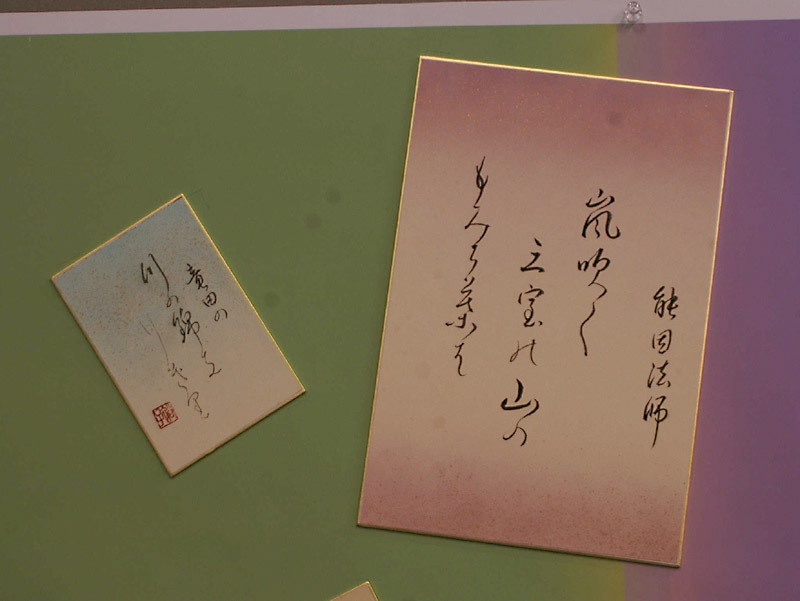 能因法師
嵐吹く
三室の山の
もみち葉は
竜田の
川の錦な
りけり